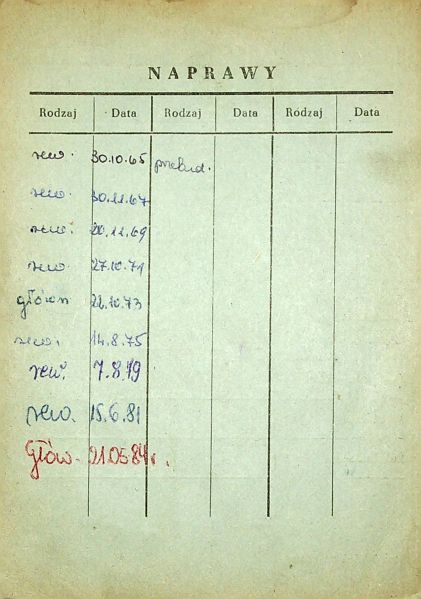 NAPRAWY
Rodzaj Data Rodzaj Data Rodzaj Data
rew. 30.10.65 przebud.
rew. 30.11.67
rew. 20.11.69
rew. 27.10.71
główn 22.10.73
rew. 14.8.75
rew. 7.8.79
rew. 15.6.81
głów. 21.05.84r.